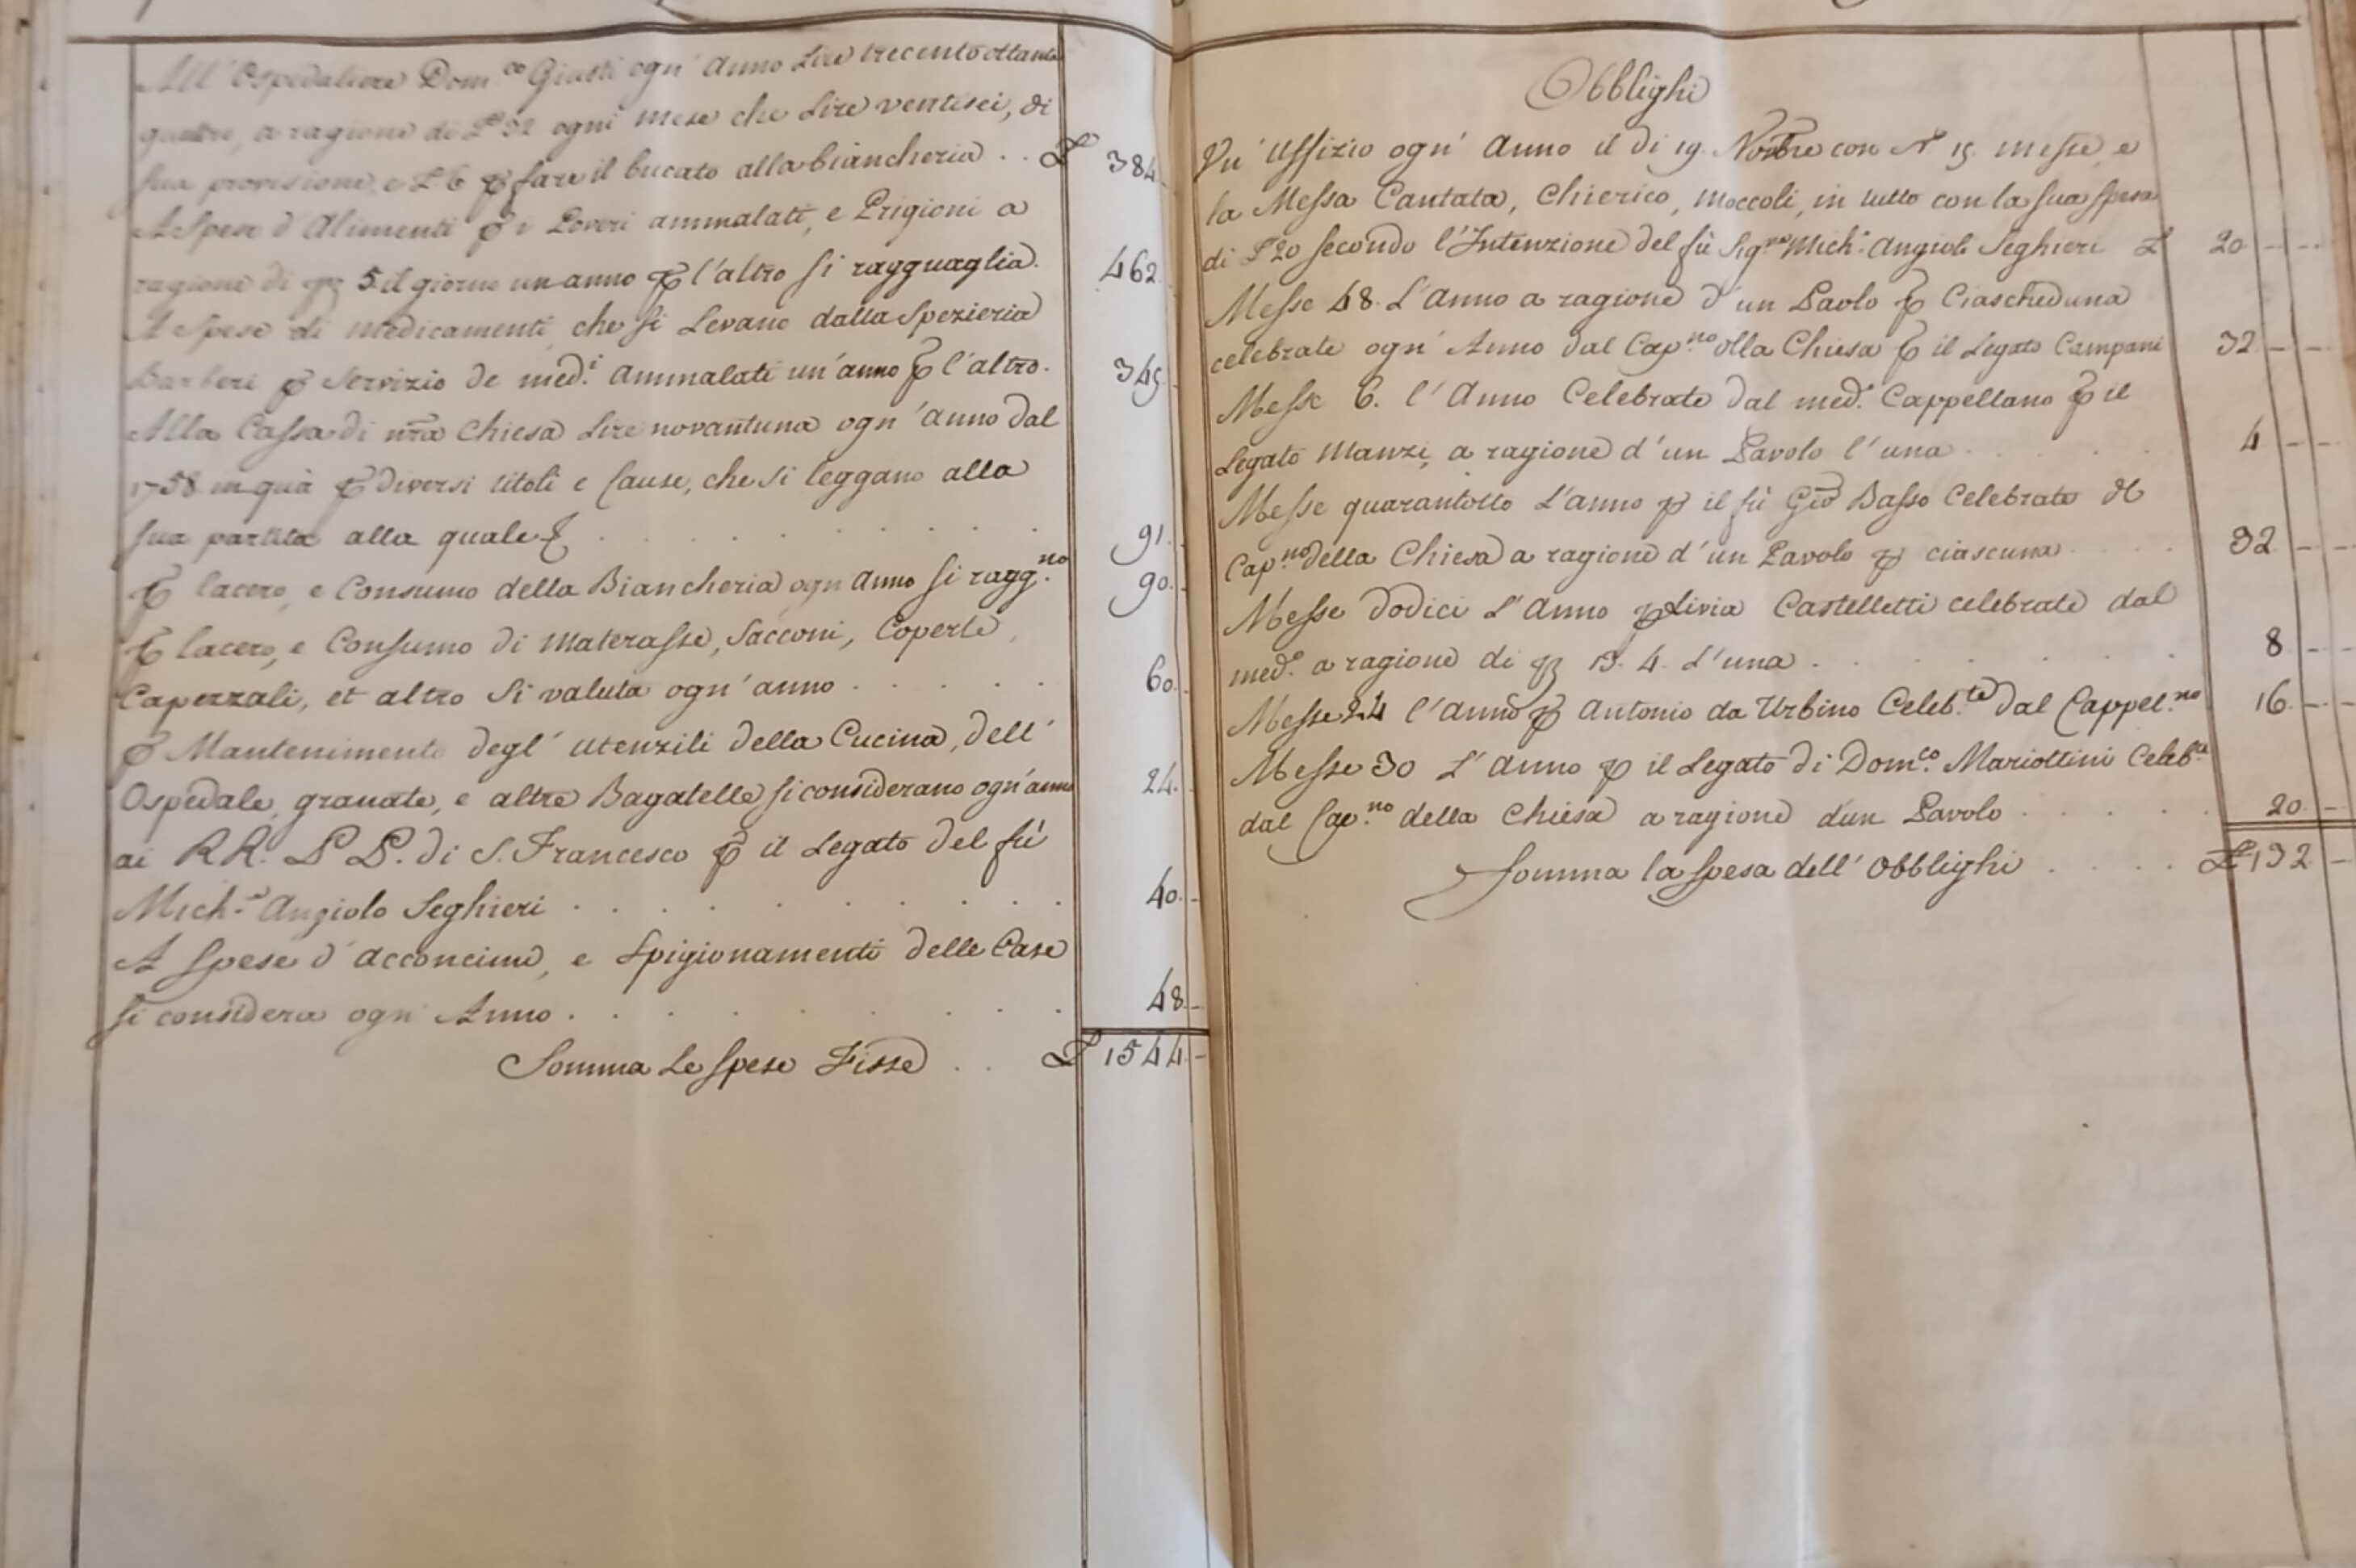 All' Ospedaliere Dom.co Giusti ogn' Anno Lire trecentottanta
quattro, a ragione di L 32 ogni mese che Lire ventisei, di
sua provisione, e L 6 p fare il bucato alla biancheria . . L 384
A Spese d'Alimenti p i Poveri ammalati, e Prigioni a
ragione di 5 il giorno un anno p l'altro si ragguaglia. 462
A Spese di Medicamenti che si Levano dalla Spezieria
Barberi p Servizio de med.i Ammalati un'anno p l'altro. 345
Alla Cassa di nra Chiesa Lire novantuna ogn'anno dal
1758 in quà p diversi titoli e Cause, che si leggano alla
sua partita alla quale & . . . . . . 91
p lacero, e Consumo della Biancheria ogn anno si ragg.no 90
p lacero, e Consumo di Materasse, Sacconi, Coperte,
Capezzali, et altro Si valuta ogn'anno . . . . 60
p Mantenimento degl' utenzili della Cucina, dell'
Ospedale, granate, e altre Bagatelle si considerano ogn'anno 24.
ai RR. P P. di S. Francesco p il Legato del fù
Mich.e Angiolo Seghieri . . . . . . . . 40.
A spese d'acconcimi, e Spigionamenti delle Case
si considera ogn' Anno . . . . . . . 48
Somma Le spese Fisse . . L 1544
Obblighi
Un' Uffizio ogn' Anno il di 19. Novbre con N 15. messe, e
la Messa Cantata, Chierico, moccoli, in tutto con la sua spesa
di L 20 secondo l'Intenzione del fù Sig.re Mich.e Angiolo Seghieri L 20 - -
Messe 48. L'Anno a ragione d'un Paolo p Ciascheduna
celebrate ogn' Anno dal Cap.no della Chiesa p il Legato Campani 32 - -
Messe 6. l'Anno Celebrate dal med.o Cappellano p il
Legato Manzi, a ragione d'un Pavolo l'una . . . . 4 - -
Messe quarantotto L'anno p il fù Gio Basso Celebrate
Cap.no della Chiesa a ragione d'un Pavolo p ciascuna . . . 32 - -
Messe dodici L'Anno p Livia Castelletti celebrate dal
med.o a ragione di 13. 4. L'una . . . . . . 8 - -
Messe 24 l'anno p Antonio da Urbino Celeb.te dal Cappel.no 16 - -
Messe 30 L'Anno p il Legato di Dom.co Mariottini Celeb.te
dal Cap.no della Chiesa a ragione d'un Pavolo . . . . 20 -
Somma la spesa dell' Obblighi . . . . L 132 -